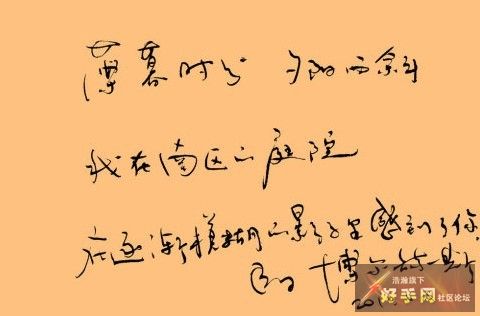 薄暮时分 夕阳西斜
我在南区的庭院
在逐渐模糊的影子里感到了你
博尔赫斯
浩瀚旗下
好手网 社区论坛